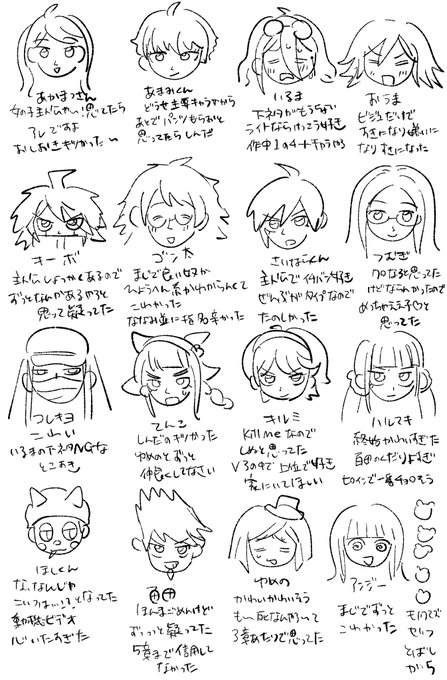 あかまつさん
女の子主人公だやい!思ってたら
アレですよ
おしおきギツかった〜
あまみくん
どうせ主要キャラすから
あとでパンツもらおと
思ってたらしんだ
いるま
下ネタがもうちょい
ライトならけっこう好き
おうま
ビジュだけで
すきになり嫌いに
なりすきになった
キーボ
主人公しょっかくあるので
ずっとなんかあるやろと
思って疑ってた
ゴン太
まじで良い奴か
ひょうへん系かわからんくて
こわかった
ななみ並に指名辛かった
さいはらくん
主人公でイチバン好き
ぜんぶがタイプなので
たのしかった
つむぎ
クロなると思ってた
けどならんかったので
めっちゃええ子やと
思ってた
コレキヨ
こわい
いるまの下ネタNGな
とこすき
てんこ
しんだのギツかった
ゆめのとずっと
仲良くしてなさい
キルミ
Kill meなので
しぬと思った
V3の中で上位で好き
家にいてほしい
ハルマキ
終始かわいすぎた
百田のくだりよすぎ
ほしくん
な、なんじゃ
こいつはぃ!?となった
動機ビデオ
心いたすぎた
百田
ほんまごめんけど
ずっっっと疑ってた
5章まで信用して
なかった
ゆめの
かわいかわいそう
3章あたりで思ってた
アンジー
まじでずっと
こわかった
モノクマズ
セリフ
とばし
がち